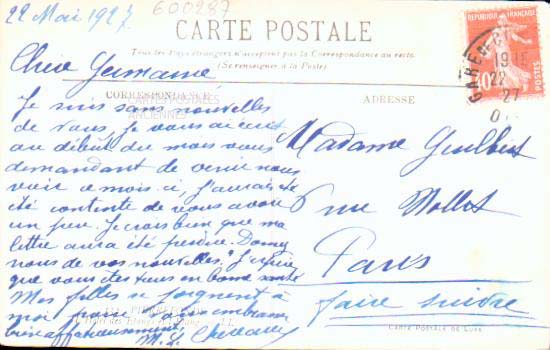 22 Mai 1927
600287
CARTE POSTALE
Tous les Pays étrangers n'acceptent pas la Correspondance au recto.
(Se renseigner à la Poste)
RÉPUBLIQUE FRANÇAISE
GAREN
22
27
Chère Germaine
CORRESPONDANCE
CARTES POSTALES
ANCIENNES
ADRESSE
Je suis sans nouvelles
de vous, Je vous ai écrit
au début du mois vous
demandant de venir nous
voir ce mois-ci, J'aurais
été contente de vous avoir
un peu. Je crois bien que ma
lettre aura été perdue. Donnez
nous de vos nouvelles. J'espère
que vous êtes tous en bonne santé
Mes filles se joignent à
moi pour vous embrasser
bien affectueusement.
M. L.
Madame Guilbert
6 rue Mollet
Paris
faire suivre
CARTE POSTALE DE LUXE